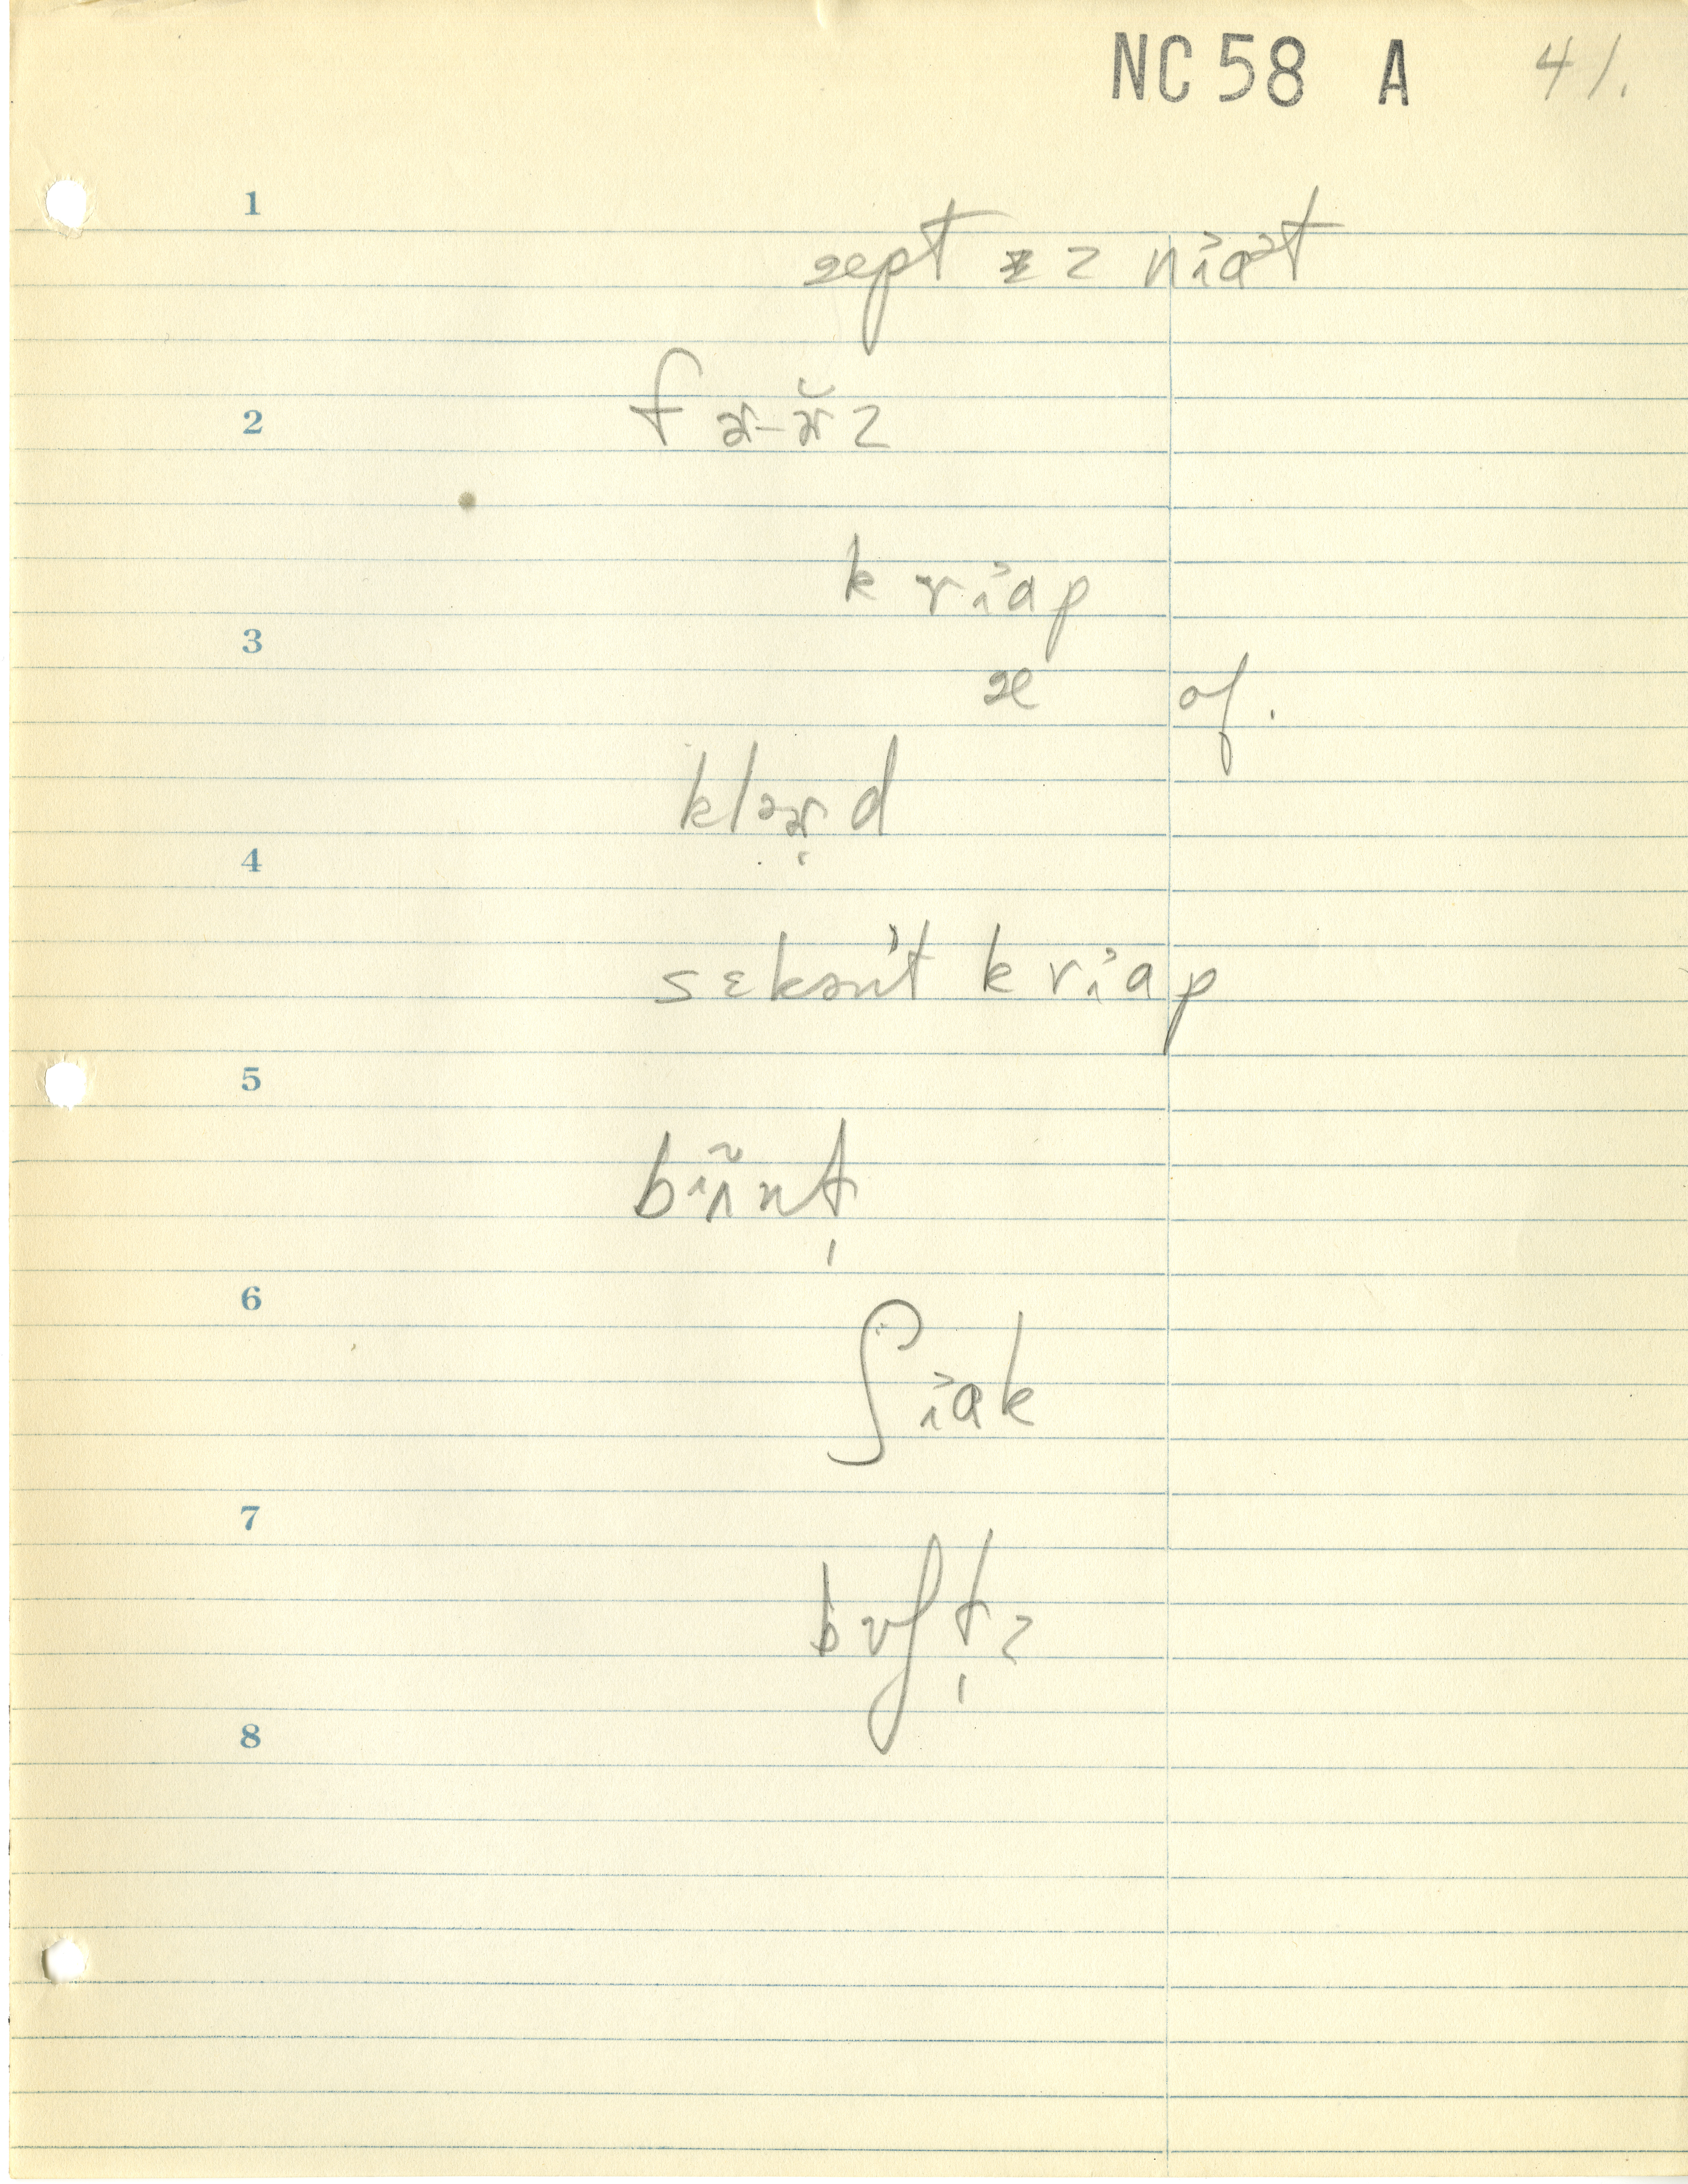 NC 58 A 41.
1
æept z z nɪ̯at
2
f ɚ-ɚ̆ z
k rɪ̯ap
3
æ of.
klɚd
4
sɛkənt k rɪ̯ap
5
bɪɪ̃nt
6
ʃɪ̯ak
7
bʊʃtz
8